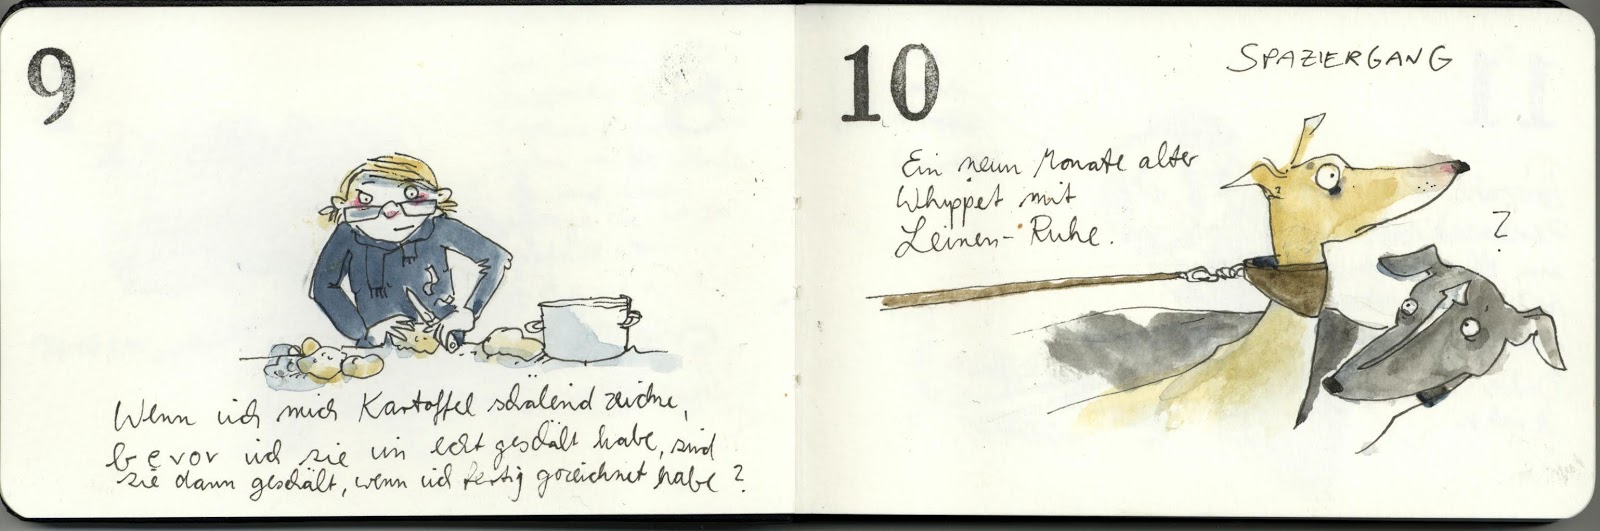 9
Wenn ich mich Kartoffel schälend zeichne,
bevor ich sie in echt geschält habe, sind
sie dann geschält, wenn ich fertig gezeichnet habe?
10
SPAZIERGANG
Ein neun Monate alter
Whippet mit
Leinen-Ruhe.
?